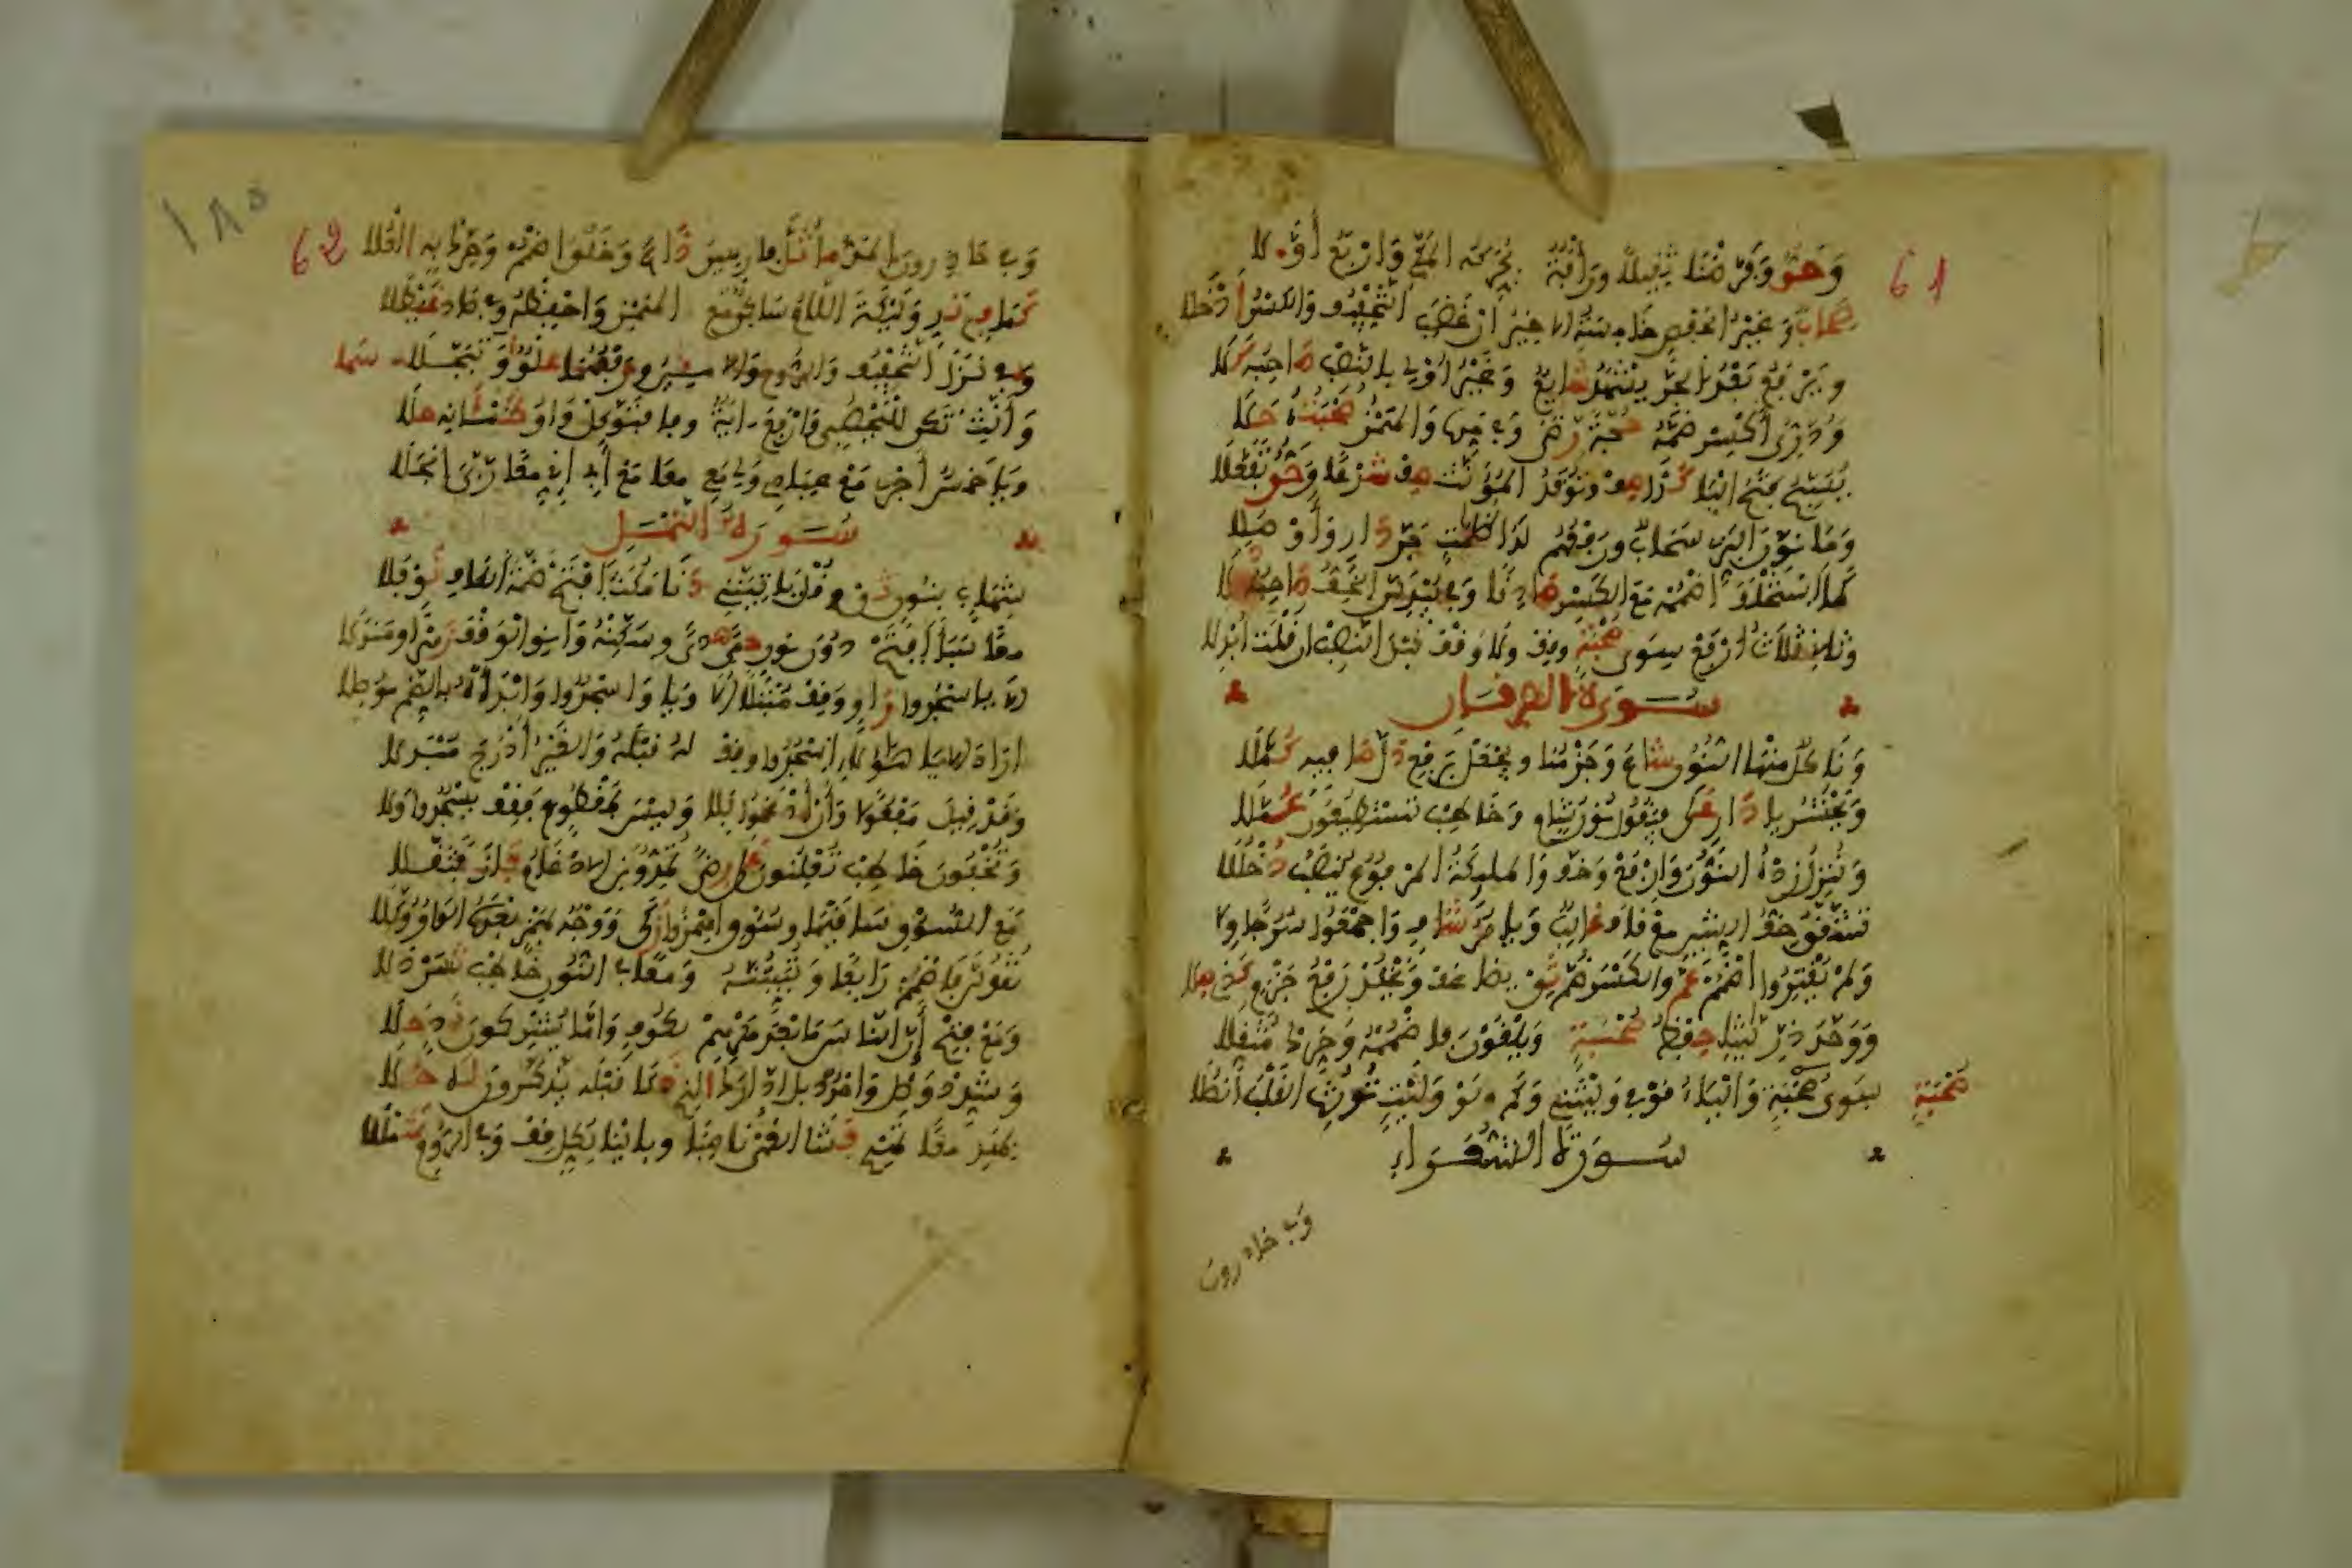 61
وَحَقٌّ وَفَرَّضْنَا ثَقِيلًا وَرَأْفَةٌ يُحَرِّكُهُ الْمَكِّي وَأَرْبَعُ أَوَّلَا
صِحَابٌ وَغَيْرُ الْحَفْصِ خَامِسَةُ الْأَخِيرُ أَنْ غَضِبَ التَّخْفِيفُ وَالْكَسْرُ أُدْخِلَا
وَيَرْفَعُ بَعْدُ الْجَرَّ يَشْهَدُ شَائِعٌ وَغَيْرُ أُولِي بِالنَّصْبِ صَاحِبُهُ كَلَا
وَدُرِّيٌّ اكْسِرْ ضَمَّهُ حُجَّةً رِضًى وَفِي مَدِّهِ وَالْهَمْزِ صُحْبَتُهُ حَلَا
يُسَبِّحُ فَتْحُ الْبَا كَذَا صِفْ وَتُوقَدُ الْمُؤَنَّثُ صِفْ شَرْعًا وَحَقٌّ تَفَعَّلَا
وَمَا نَوَّنَ الْبَزِّي سَحَابٌ وَرَفْعُهُمْ لَدَى ظُلُمَاتٍ جَرَّ دَارٍ وَأَوْصَلَا
كَمَا اسْتُخْلِفَ اضْمُمْهُ مَعَ الْكَسْرِ صَادِقًا وَفِي يُبْدِلَنَّ الْخِفُّ صَاحِبُهُ دَلَا
وَثَانِي ثَلَاثَ ارْفَعْ سِوَى صُحْبَةٍ وَقِفْ وَلَا وَقْفَ قَبْلَ النَّصْبِ إِنْ قُلْتَ أُبْدِلَا
سُورَةُ الْفُرْقَانِ
وَنَأْكُلُ مِنْهَا النُّونُ شَاعَ وَجَزْمُنَا وَيَجْعَلْ بِرَفْعٍ دَلَّ صَافِيهِ كُمَّلَا
وَيَحْشُرُ يَا دَارٍ عَلَى فَيَقُولُ نُونُ شَامٍ وَخَاطِبْ تَسْتَطِيعُونَ عُمَّلَا
وَنُنْزِلُ زِدْهُ النُّونَ وَارْفَعْ وَخِفَّ وَالْمَلَائِكَةُ الْمَرْفُوعُ يُنْصَبُ دُخْلُلَا
تَشَقَّقُ خِفُّ الشِّينِ مَعْ قَافَ غَالِبٌ وَيَأْمُرُ شَافٍ وَاجْمَعُوا سُرُجًا وِلَا
وَلَمْ يَقْتِرُوا اضْمُمْ عَمَّ وَالْكَسْرَ ضُمَّ ثِقْ يُضَاعَفْ وَيَخْلُدْ رَفْعُ جَزْمٍ كَذِي صِلَا
وَوَحَّدَ ذُرِّيَّاتِنَا حِفْظُ صُحْبَةٍ وَيَلْقَوْنَ فَاضْمُمْهُ وَحَرِّكْ مُثَقِّلَا
سِوَى صُحْبَةٍ وَالْيَاءُ قَوْمِي وَلَيْتَنِي وَكَمْ لَوْ وَلَيْتٍ تُورِثُ الْقَلْبَ أَنْصُلَا
صُحْبَةٍ
سُورَةُ الشُّعَرَاءِ
وَفِي حَاذِرُونَ
62
١٨٥
وَفِي حَاذِرُونَ الْمَدُّ مَا ثُلَّ فَارِهِينَ ذَاعَ وَخَلْقُ اضْمُمْ وَحَرِّكْ بِهِ الْعُلَا
كَمَا فِي نَدٍ وَلَيْكَةَ اللَّامُ سَاكِنٌ مَعَ الْهَمْزِ وَاخْفِضْهُ وَفِي صَادَ غَيْطَلَا
وَفِي نَزَّلَ التَّخْفِيفُ وَالرُّوحُ وَالْأَمِينُ رَفْعُهُمَا عُلْوٌ وَتَبَجَّلَا سَمَا
وَأَنِّثْ تَكُنْ لِلْيَحْصُبِي وَارْفَعَ آيَةً وَفَا فَتَوَكَّلْ وَاوُ ظَمْآنِهِ حَلَا
وَيَا خَمْسِ أَجْرِي مَعْ عِبَادِي وَلِي مَعِي مَعًا مَعْ أَبِي إِنِّي مَعًا رَبِّيَ انْجَلَا
سُورَةُ النَّمْلِ
شِهَابٍ بِنُونٍ ثِقْ وَقُلْ يَأْتِيَنَّنِي دَنَا مَكُثَ افْتَحْ ضَمَّةَ الْكَافِ نَوْفَلَا
مَعًا سَبَأَ افْتَحْ دُونَ نُونٍ حِمًى هُدًى وَسَكِّنْهُ وَانْوِ الْوَقْفَ زُهْرًا وَمَنْدَلَا
أَلَا يَا اسْجُدُوا رَاوٍ وَقِفْ مُبْتَلًى أَلَا وَيَا وَاسْجُدُوا وَابْدَأْهُ بِالضَّمِّ مُوصِلَا
أَرَادَ أَلَا يَا هَؤُلَاءِ اسْجُدُوا وَقِفْ لَهُ قَبْلَهُ وَالْغَيْرُ أَدْرَجَ مُبْدِلَا
وَقَدْ قِيلَ مَفْعُولًا وَأَنْ أَدْغَمُوا بِلَا وَلَيْسَ بِمَقْطُوعٍ فَقِفْ يَسْجُدُوا وَلَا
وَتُخْفُونَ خَاطِبْ تُعْلِنُونَ عَلَى رِضًى تُمِدُّونَنِي الْإِدْغَامُ فَازَ فَثَقَّلَا
مَعَ السُّوقِ سَاقَيْهَا وَسُوقِ اهْمِزُوا زَكَى وَوَجْهٌ بِهَمْزٍ بَعْدَهُ الْوَاوُ وُكِّلَا
تَقُولَنَّ فَاضْمُمْ رَابِعًا وَتُبَيِّتَنَّهُ وَمَعًا فِي النُّونِ خَاطِبْ شَمَرْدَلَا
وَمَعْ فَتْحِ أَنَّ النَّاسَ مَا بَعْدَ مَكْرِهِمْ لِكُوفٍ وَأَمَّا يُشْرِكُونَ نَدٍ حَلَا
وَشَدِّدْ وَصِلْ وَامْدُدْ بَلِ ادَّارَكَ الَّذِي ذَكَا قَبْلَهُ يَذَّكَّرُونَ لَهُ حُلَا
بِهَادِي مَعًا تَهْدِي فَشَا الْعُمْيَ نَاصِبًا وَبِالْيَا لِكُلٍّ قِفْ وَفِي الرُّومِ شَمْلَلَا